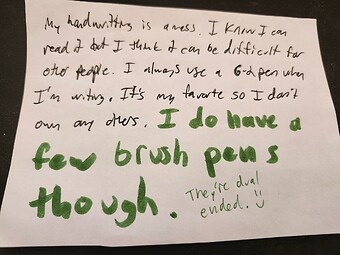 My handwriting is a mess. I know I can
read it but I think it can be difficult for
other people. I always use a G-2 pen when
I'm writing. It's my favorite so I don't
own any others. I do have a
few brush pens
though. They're dual
ended. :)